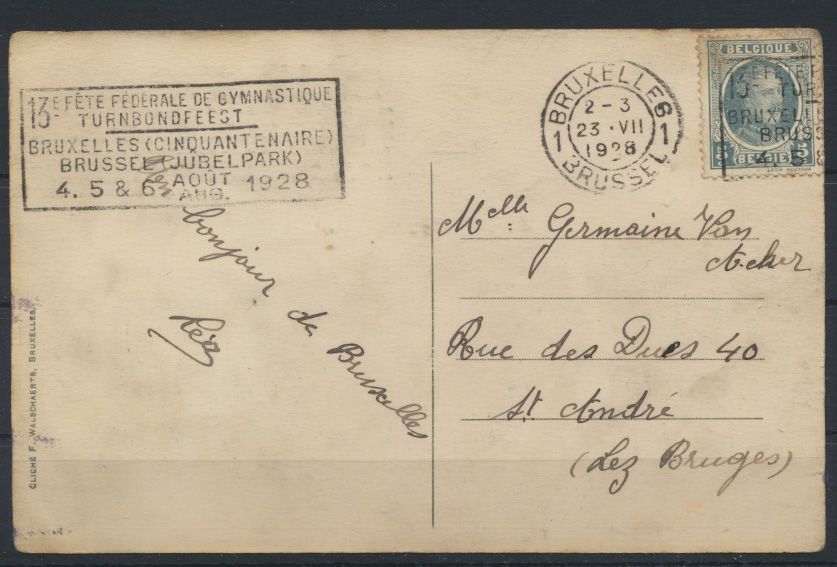 13E FÊTE FÉDÉRALE DE GYMNASTIQUE
TURNBONDFEEST
BRUXELLES (CINQUANTENAIRE)
BRUSSEL (JUBELPARK)
4. 5 & 6 AOÛT 1928
AUG.
BRUXELLES
2-3
1 23·VII 1
1928
BRUSSEL
BELGIQUE
5 5
BELGIË
13E FÊTE
TURN
BRUXELLE
BRUSS
4. 5 &
bonjour de Bruxelles
Melle Germaine Van
Acker
Rue des Ducs 40
St André
(Lez Bruges)
CLICHÉ F. WALSCHAERTS, BRUXELLES.